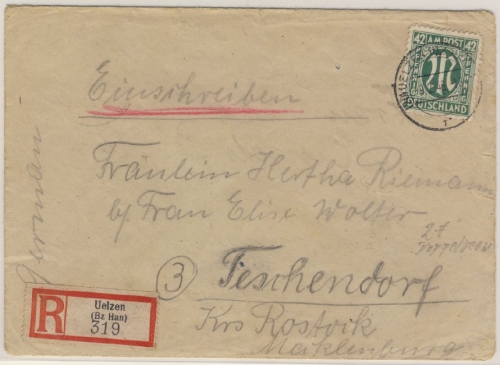 42 AM POST 42
M
DEUTSCHLAND
UELZEN
Einschreiben
German
Fräulein Hertha Riemann
b/ Frau Elise Wolter
27
③ Teschendorf
Krs Rostock
Mecklenburg
R
Uelzen
(Bz Han)
319